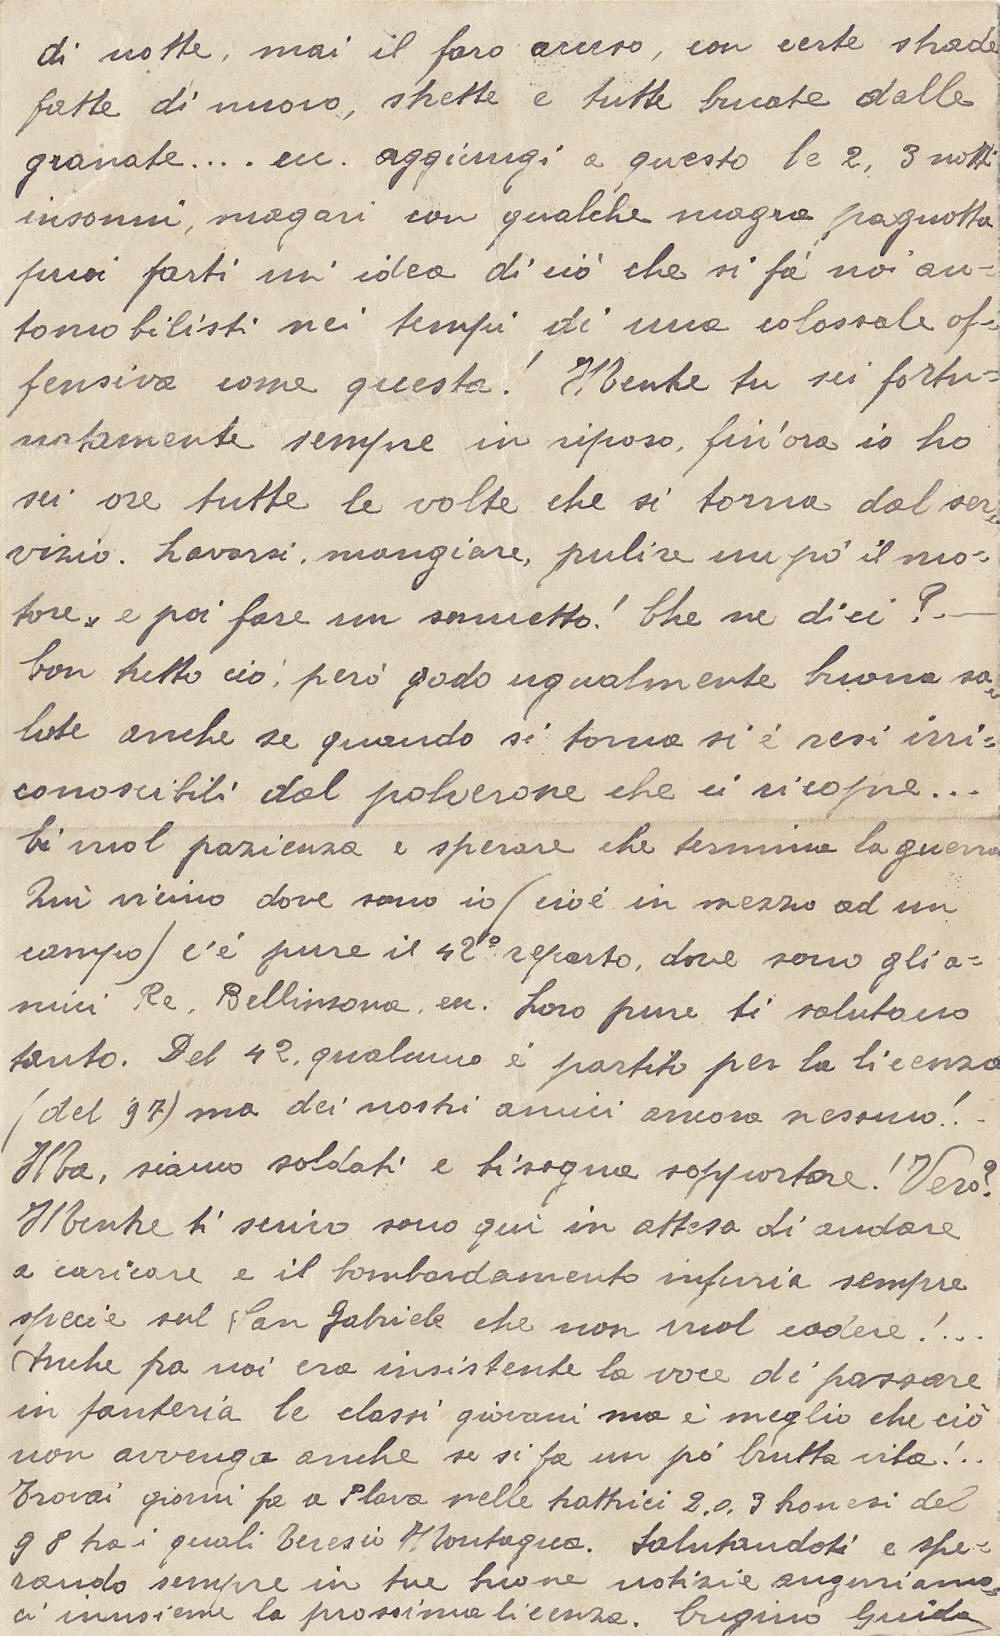 di notte, mai il faro acceso, con certe strade
fatte di nuovo, strette e tutte bucate dalle
granate.... ecc. aggiungi a questo le 2, 3 notti
insonni, magari con qualche magra pagnotta
puoi farti un'idea di ciò che si fà noi au-
tomobilisti nei tempi di una colossale of-
fensiva come questa! Mentre tu sei fortu-
natamente sempre in riposo, fin'ora io ho
sei ore tutte le volte che si torna dal ser-
vizio. Lavarsi, mangiare, pulire un pò il mo-
tore, e poi fare un sonnetto! Che ne dici?—
Con tutto ciò, però godo ugualmente buona sa-
lute anche se quando si torna si è resi irri-
conoscibili dal polverone che ci ricopre...
Ci vuol pazienza e sperare che termina la guerra
Quì vicino dove sono io (cioè in mezzo ad un
campo) c'è pure il 42º reparto, dove sono gli a-
mici Re, Bellinzona, ecc. Loro pure ti salutano
tanto. Del 42, qualcuno è partito per la licenza
(del 97) ma dei nostri amici ancora nessuno!.-
Ma, siamo soldati e bisogna sopportare! Vero?
Mentre ti scrivo sono qui in attesa di andare
a caricare e il bombardamento infuria sempre
specie sul San Gabriele che non vuol cadere!...
Anche fra noi era insistente la voce di passare
in fanteria le classi giovani ma è meglio che ciò
non avvenga anche se si fa un pò brutta vita!..
Trovai giorni fa a Plava nelle trattrici 2.o, 3 honesi del
98 tra i quali Teresio Montagna. Salutandoti e spe-
rando sempre in tue buone notizie auguriamo-
ci insieme la prossima licenza. Cugino Guido